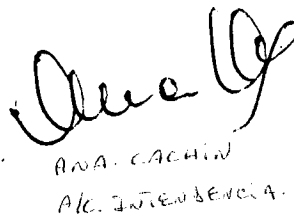 Ana C
ANA. CACHIN
A/C. INTENDENCIA.